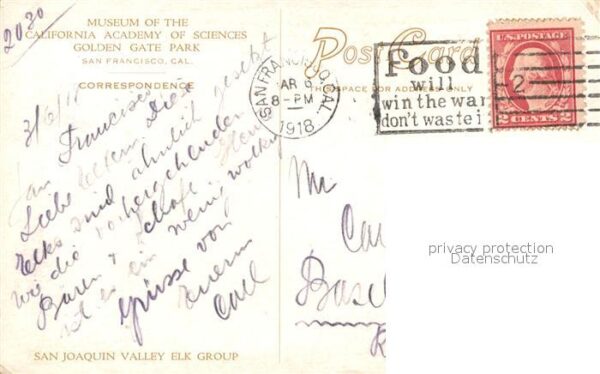 2030
MUSEUM OF THE
CALIFORNIA ACADEMY OF SCIENCES
GOLDEN GATE PARK
SAN FRANCISCO, CAL.
CORRESPONDENCE
3/6/18
San Francisco
Liebe Eltern Diese
Elks sind ähnlich gesetzt
wie die vorhergehenden
Bären & Schafe. Heute
ist es ein wenig wolkig
Grüsse von
Eurem
Carl
SAN JOAQUIN VALLEY ELK GROUP
Post Card
THIS SPACE FOR ADDRESS ONLY
SAN FRANCISCO, CAL.
MAR 6
8-PM
1918
Food
will
win the war
don't waste i
U.S. POSTAGE
2
2 CENTS 2
Mr
Ca
Basel
privacy protection
Datenschutz